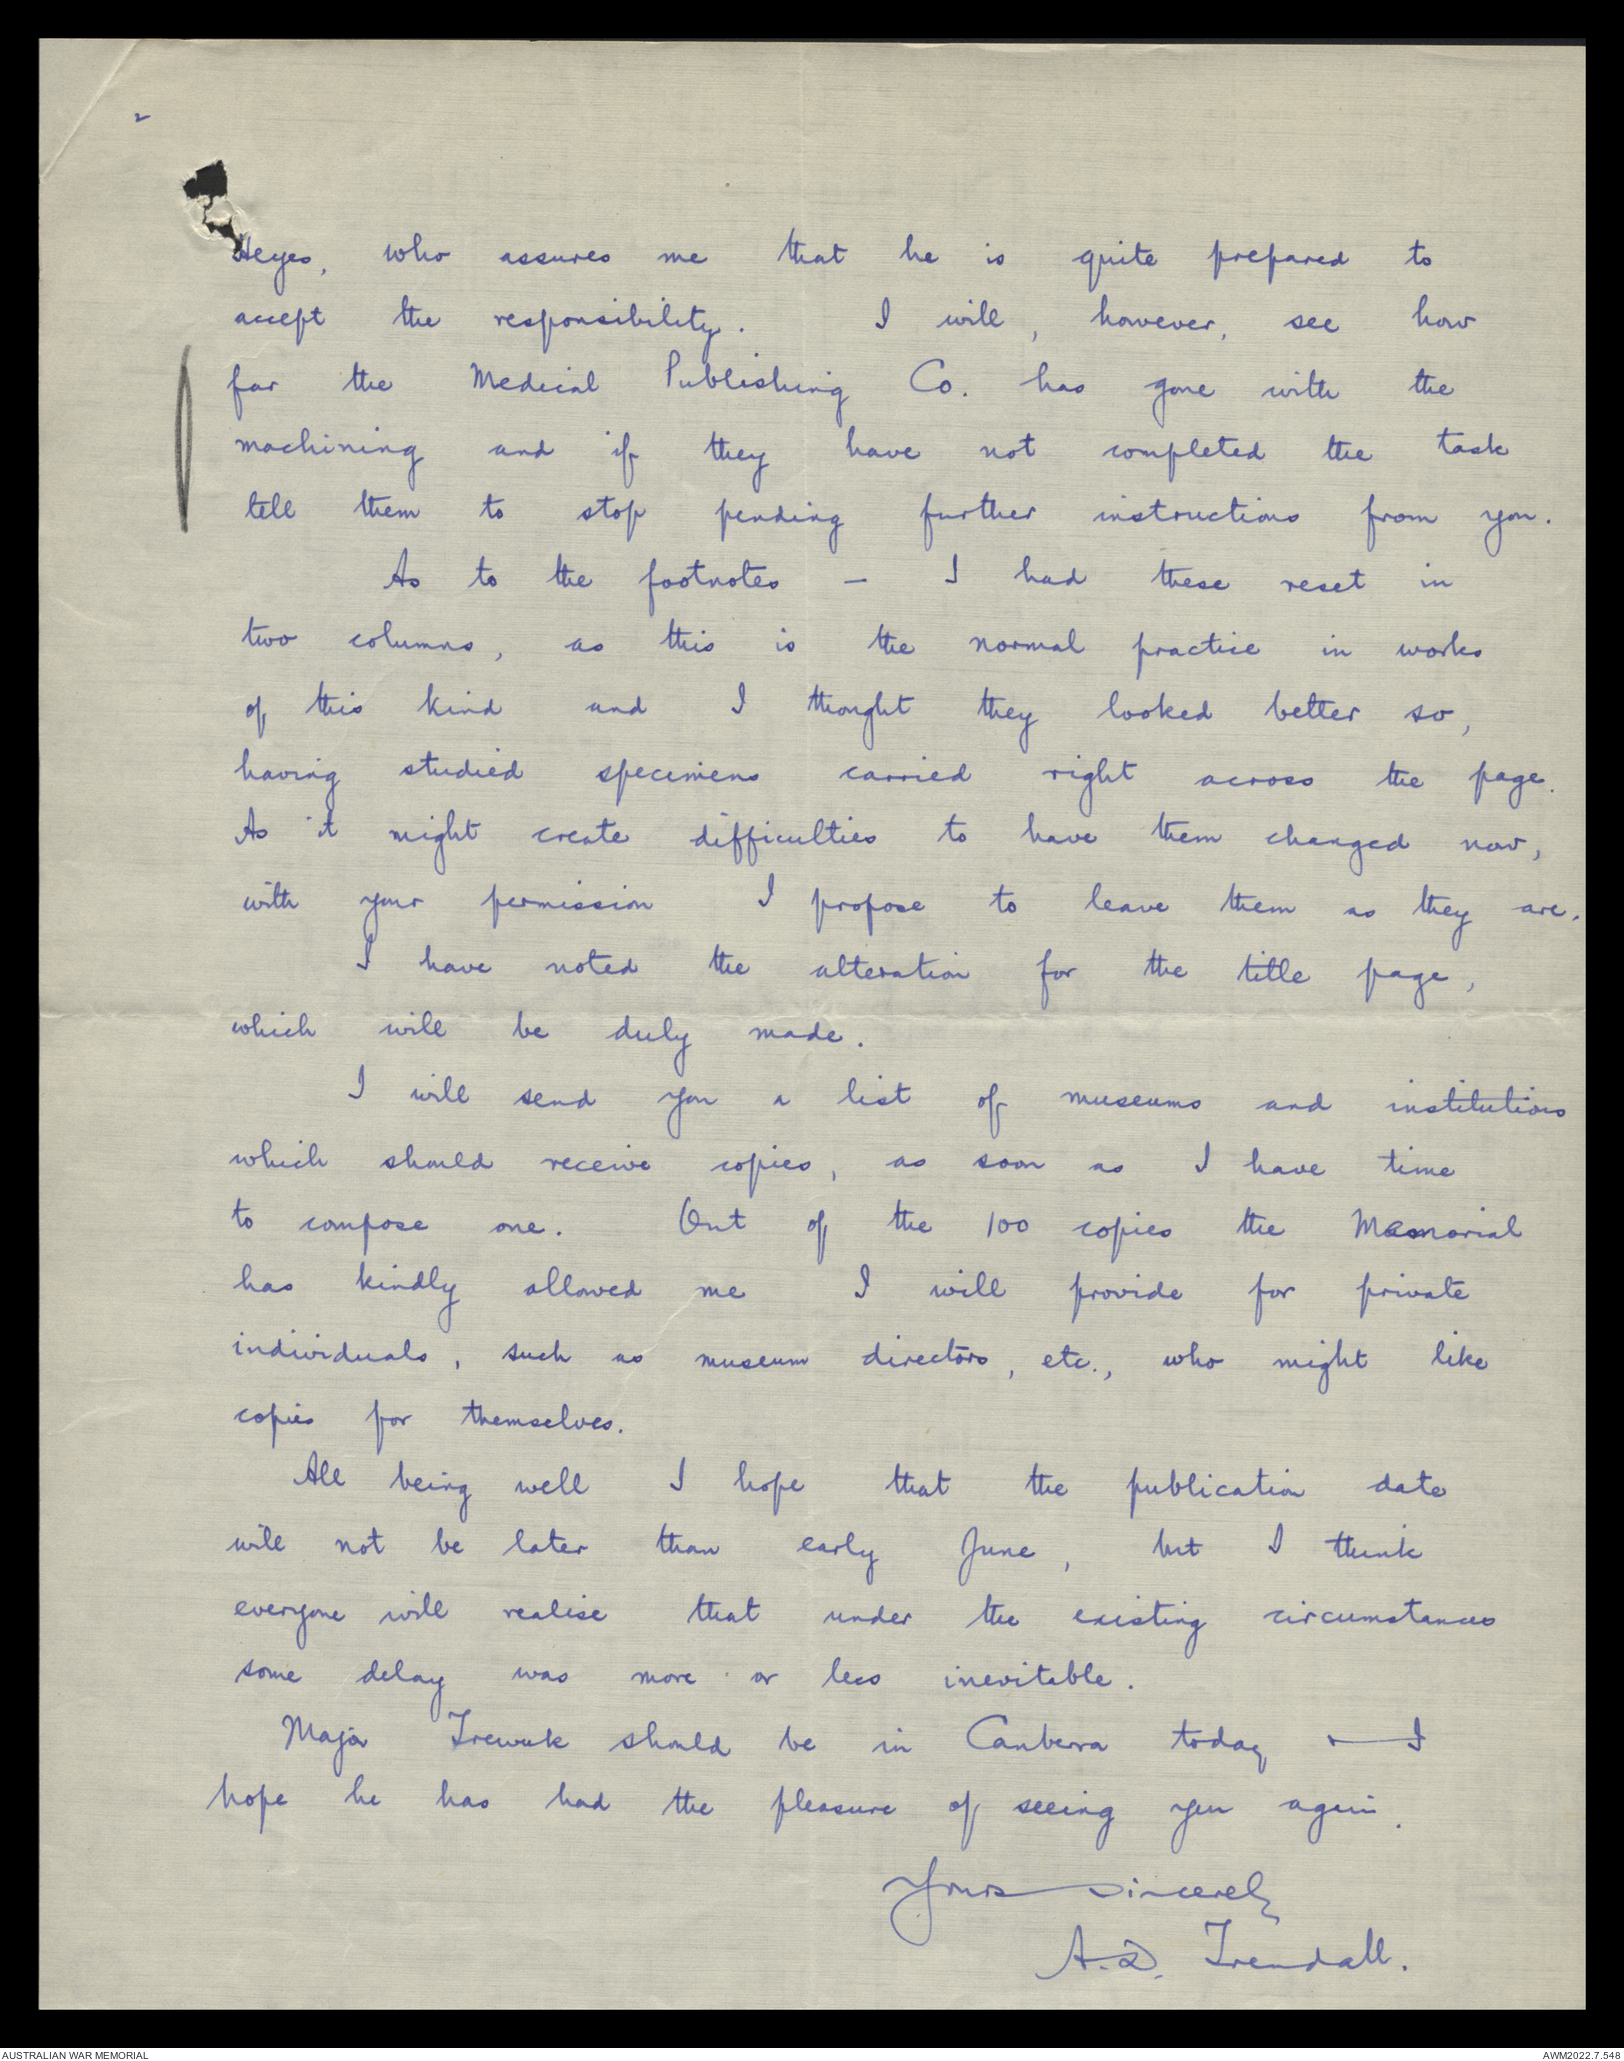 2
Heyes, who assures me that he is quite prepared to
accept the responsibility. I will, however, see how
far the Medical Publishing Co. has gone with the
machining and if they have not completed the task
tell them to stop pending further instructions from you.
As to the footnotes — I had these reset in
two columns, as this is the normal practice in works
of this kind and I thought they looked better so,
having studied specimens carried right across the page.
As it might create difficulties to have them changed now,
with your permission I propose to leave them as they are.
I have noted the alteration for the title page,
which will be duly made.
I will send you a list of museums and institutions
which should receive copies, as soon as I have time
to compose one. Out of the 100 copies the Memorial
has kindly allowed me I will provide for private
individuals, such as museum directors, etc., who might like
copies for themselves.
All being well I hope that the publication date
will not be later than early June, but I think
everyone will realise that under the existing circumstances
some delay was more or less inevitable.
Major Treweek should be in Canberra today & I
hope he has had the pleasure of seeing you again.
Yours sincerely
A.D. Trendall.
AUSTRALIAN WAR MEMORIAL
AWM2022.7.548